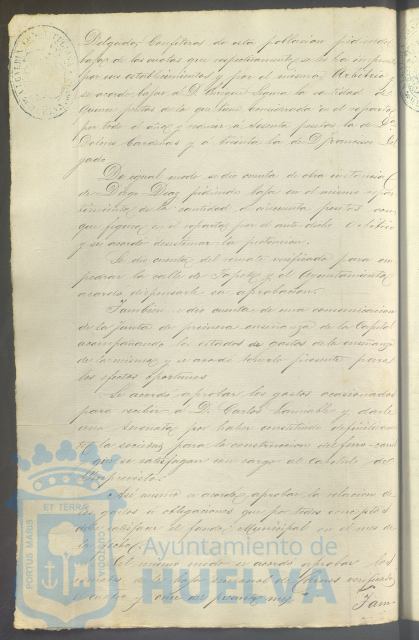 Delgado, Confiteros de esta poblacion pidiendo
bajas de las cuotas que respectivamente se les ha impuesto
por sus establecimientos y por el mismo Arbitrio
se acordó bajar a D. la cantidad de
quince pesetas de la que tiene consideracion en el reparto
por todo el año y rebajar á sesenta pesetas la de D.ª
Dolores Cardeñas y á treinta la de D. Francisco Del
gado.
De igual modo se dió cuenta de otra instancia
de Diego Diaz pidiendo baja en el mismo repar
timiento de la cantidad de cincuenta pesetas con
que figura en el reparto por el ante dicho Arbitrio
y se acordó desestimar la pretension.
Se dió cuenta del remate verificado para em
pedrar la calle de y el Ayuntamiento
acordó dispensarle su aprobacion.
Tambien se dió cuenta de una comunicacion
de la Junta de primera enseñanza de la Capital
acompañando los estados de gastos de la enseñanza
de la misma y se acordó tenerlo presente para
los efectos oportunos.
Se acordó aprobar los gastos ocasionados
para recibir á D. Carlos y darle
una serenata por haber constituido definitivamen
te la sociedad para la construccion del ferro-carril
y que se satisfagan con cargo al Capitulo de
Imprevistos.
Asi mismo se acordó aprobar la relacion de
los gastos ú obligaciones que por todos conceptos
debe satisfacer el fondo Municipal en el mes de
la fecha.
Del mismo modo se acordó aprobar los
del presente mes.
Tam-
ET TERRÆ
PORTUS MARIS
CUSTODIA
Ayuntamiento de
HUELVA